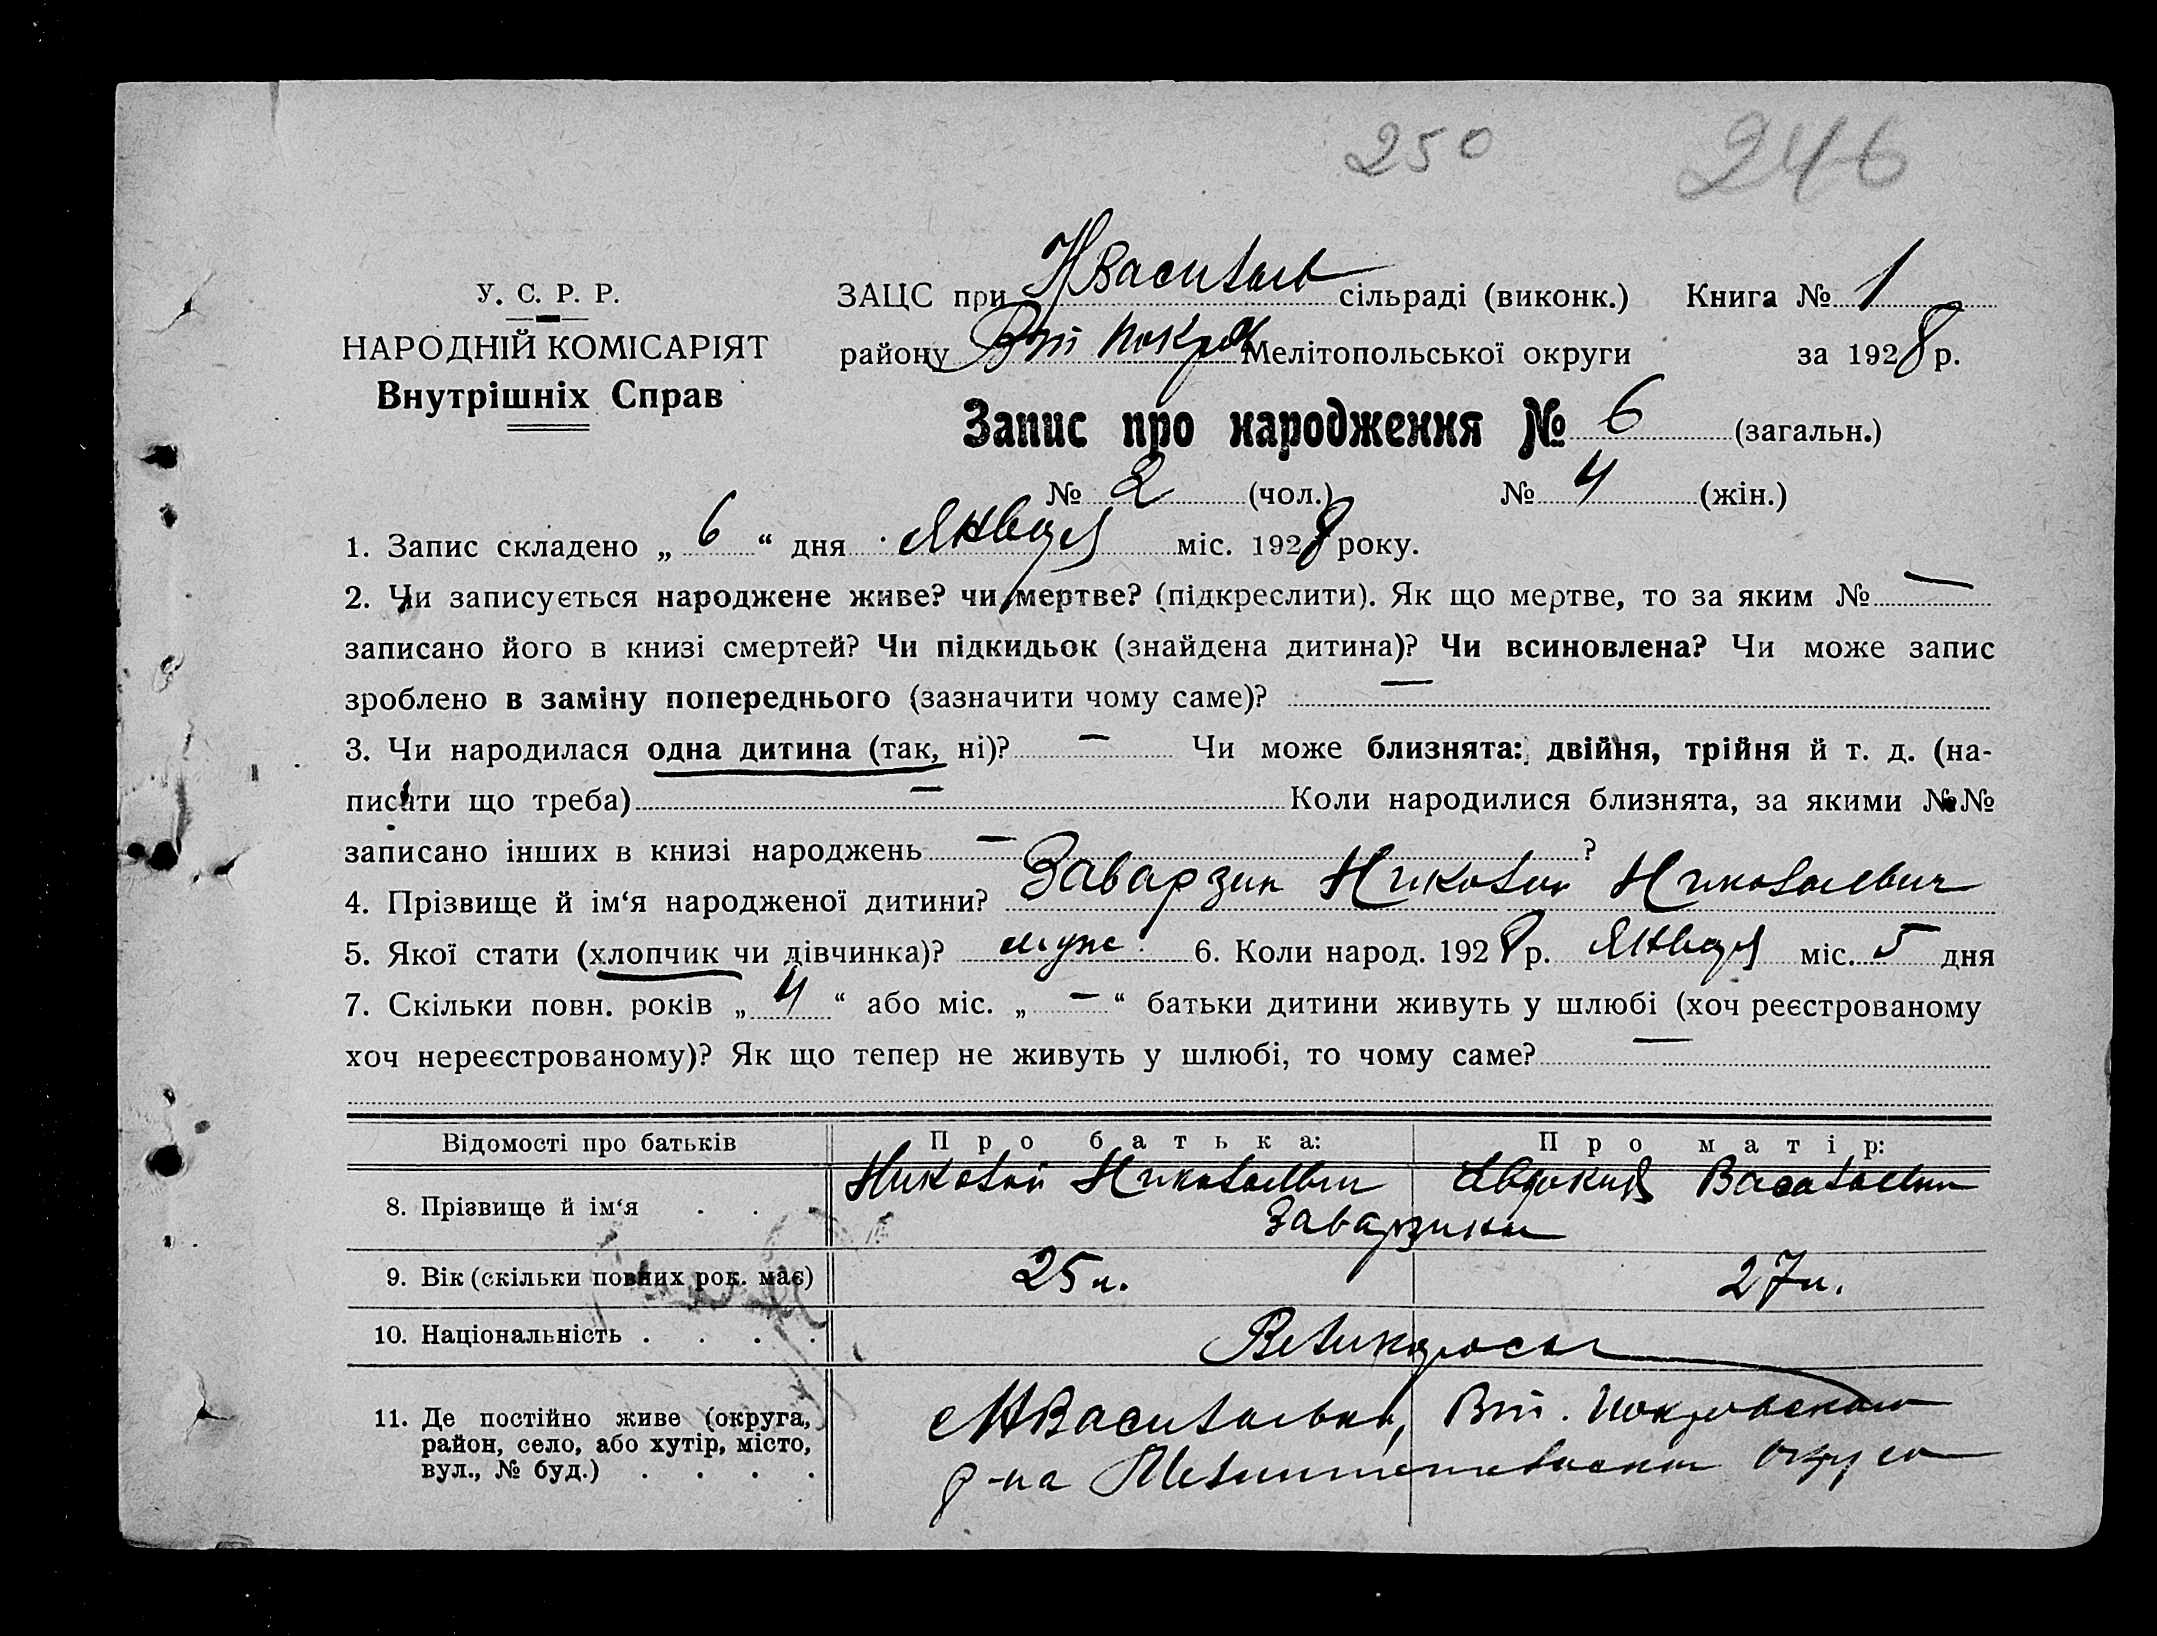 250 246
У. С. Р. Р.
НАРОДНІЙ КОМІСАРІЯТ
Внутрішніх Справ
ЗАЦС при НВасильев сільраді (виконк.) Книга № 1
району Вті Покров Мелітопольської округи за 1928 р.
Запис про народження № 6 (загальн.)
№ 2 (чол.) № 4 (жін.)
1. Запис складено „ 6 “ дня Января міс. 1928 року.
2. Чи записується народжене живе? чи мертве? (підкреслити). Як що мертве, то за яким № —
записано його в книзі смертей? Чи підкидьок (знайдена дитина)? Чи всиновлена? Чи може запис
зроблено в заміну попереднього (зазначити чому саме)? —
3. Чи народилася одна дитина (так, ні)? — Чи може близнята: двійня, трійня й т. д. (на-
писати що треба) — Коли народилися близнята, за якими №№
записано інших в книзі народжень — ?
4. Прізвище й ім‘я народженої дитини? Заварзин Николай Николаевич
5. Якої стати (хлопчик чи дівчинка)? муж. 6. Коли народ. 1928 р. Января міс. 5 дня
7. Скільки повн. років „ 4 “ або міс. „ — “ батьки дитини живуть у шлюбі (хоч реєстрованому
хоч нереєстрованому)? Як що тепер не живуть у шлюбі, то чому саме? —
Відомості про батьків Про батька: Про матір:
8. Прізвище й ім‘я . . . Николай Николаевич Евдокия Васильевна
Заварзины
9. Вік (скільки повних рок. має) 25 л. 27 л.
10. Національність . . . . Великороссы
11. Де постійно живе (округа, НВасильевка, Вті. Покровского
район, село, або хутір, місто,
вул., № буд.) . . . . р-на Мелитопольского округа